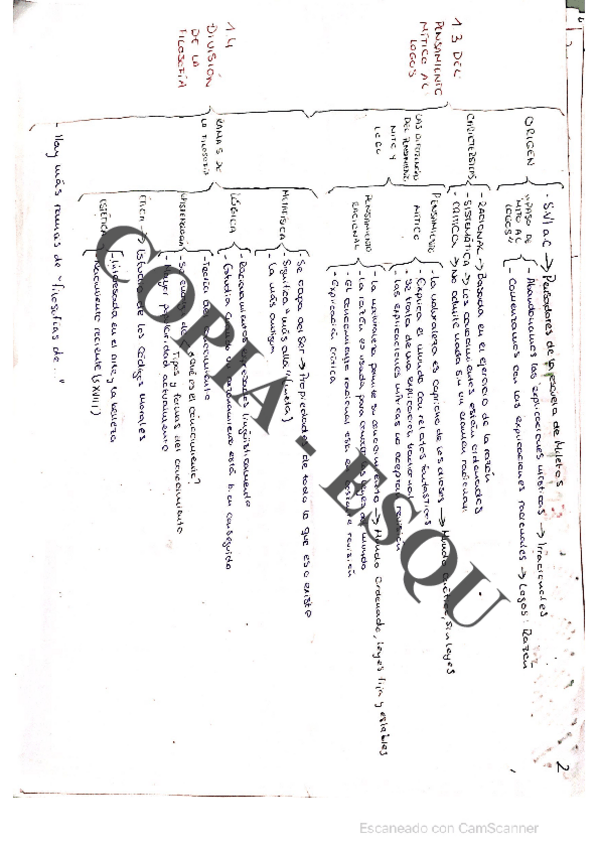 2
1.3 DEL
PENSAMIENTO
MÍTICO AL
LOGOS
ORIGEN
- S.VI a.C → Pensadores de la escuela de Mileto
"PASO DE
MITO AL
LOGOS"
- Abandonamos las explicaciones míticas → Irracionales
- Comenzamos con las explicaciones racionales → Logos: Razón
- RACIONAL → Basada en el ejercicio de la razón
- SISTEMÁTICA → Los conocimientos están ordenados
- CRÍTICA → No admite nada sin un examen racional
LAS DIFERENCIAS
DEL PENSAMIENTO
MITO Y
LOGO
PENSAMIENTO
MÍTICO
- La naturaleza es capricho de los dioses → Mundo caótico, sin leyes
- Explica el mundo con relatos fantásticos
- Se trata de una explicación tradicional
- Las explicaciones míticas no aceptan revisión
PENSAMIENTO
RACIONAL
- La naturaleza permite su conocimiento → Mundo ordenado, leyes fijas y estables
- La razón es usada para conocer las leyes del mundo
- El conocimiento racional está en constante revisión
- Explicación crítica
1.4
DIVISIÓN
DE LA
FILOSOFÍA
RAMAS DE
LA FILOSOFÍA
METAFÍSICA
- Se ocupa del Ser → Propiedades de todo lo que es o existe
- Significa "más allá" (meta)
- La más antigua
LÓGICA
- Razonamientos expresados lingüísticamente
- Estudia cuando un razonamiento está bien conseguido
EPISTEMOLOGÍA
- Teoría del conocimiento
¿Qué es el conocimiento?
Tipos y formas del conocimiento
- Mayor popularidad actualmente
ÉTICA → Estudio de los códigos morales
ESTÉTICA
- Interesada en el arte y la belleza
- Nacimiento reciente (s.XVIII)
- Hay más ramas de "filosofías de..."
COPIA - ESQU
Escaneado con CamScanner